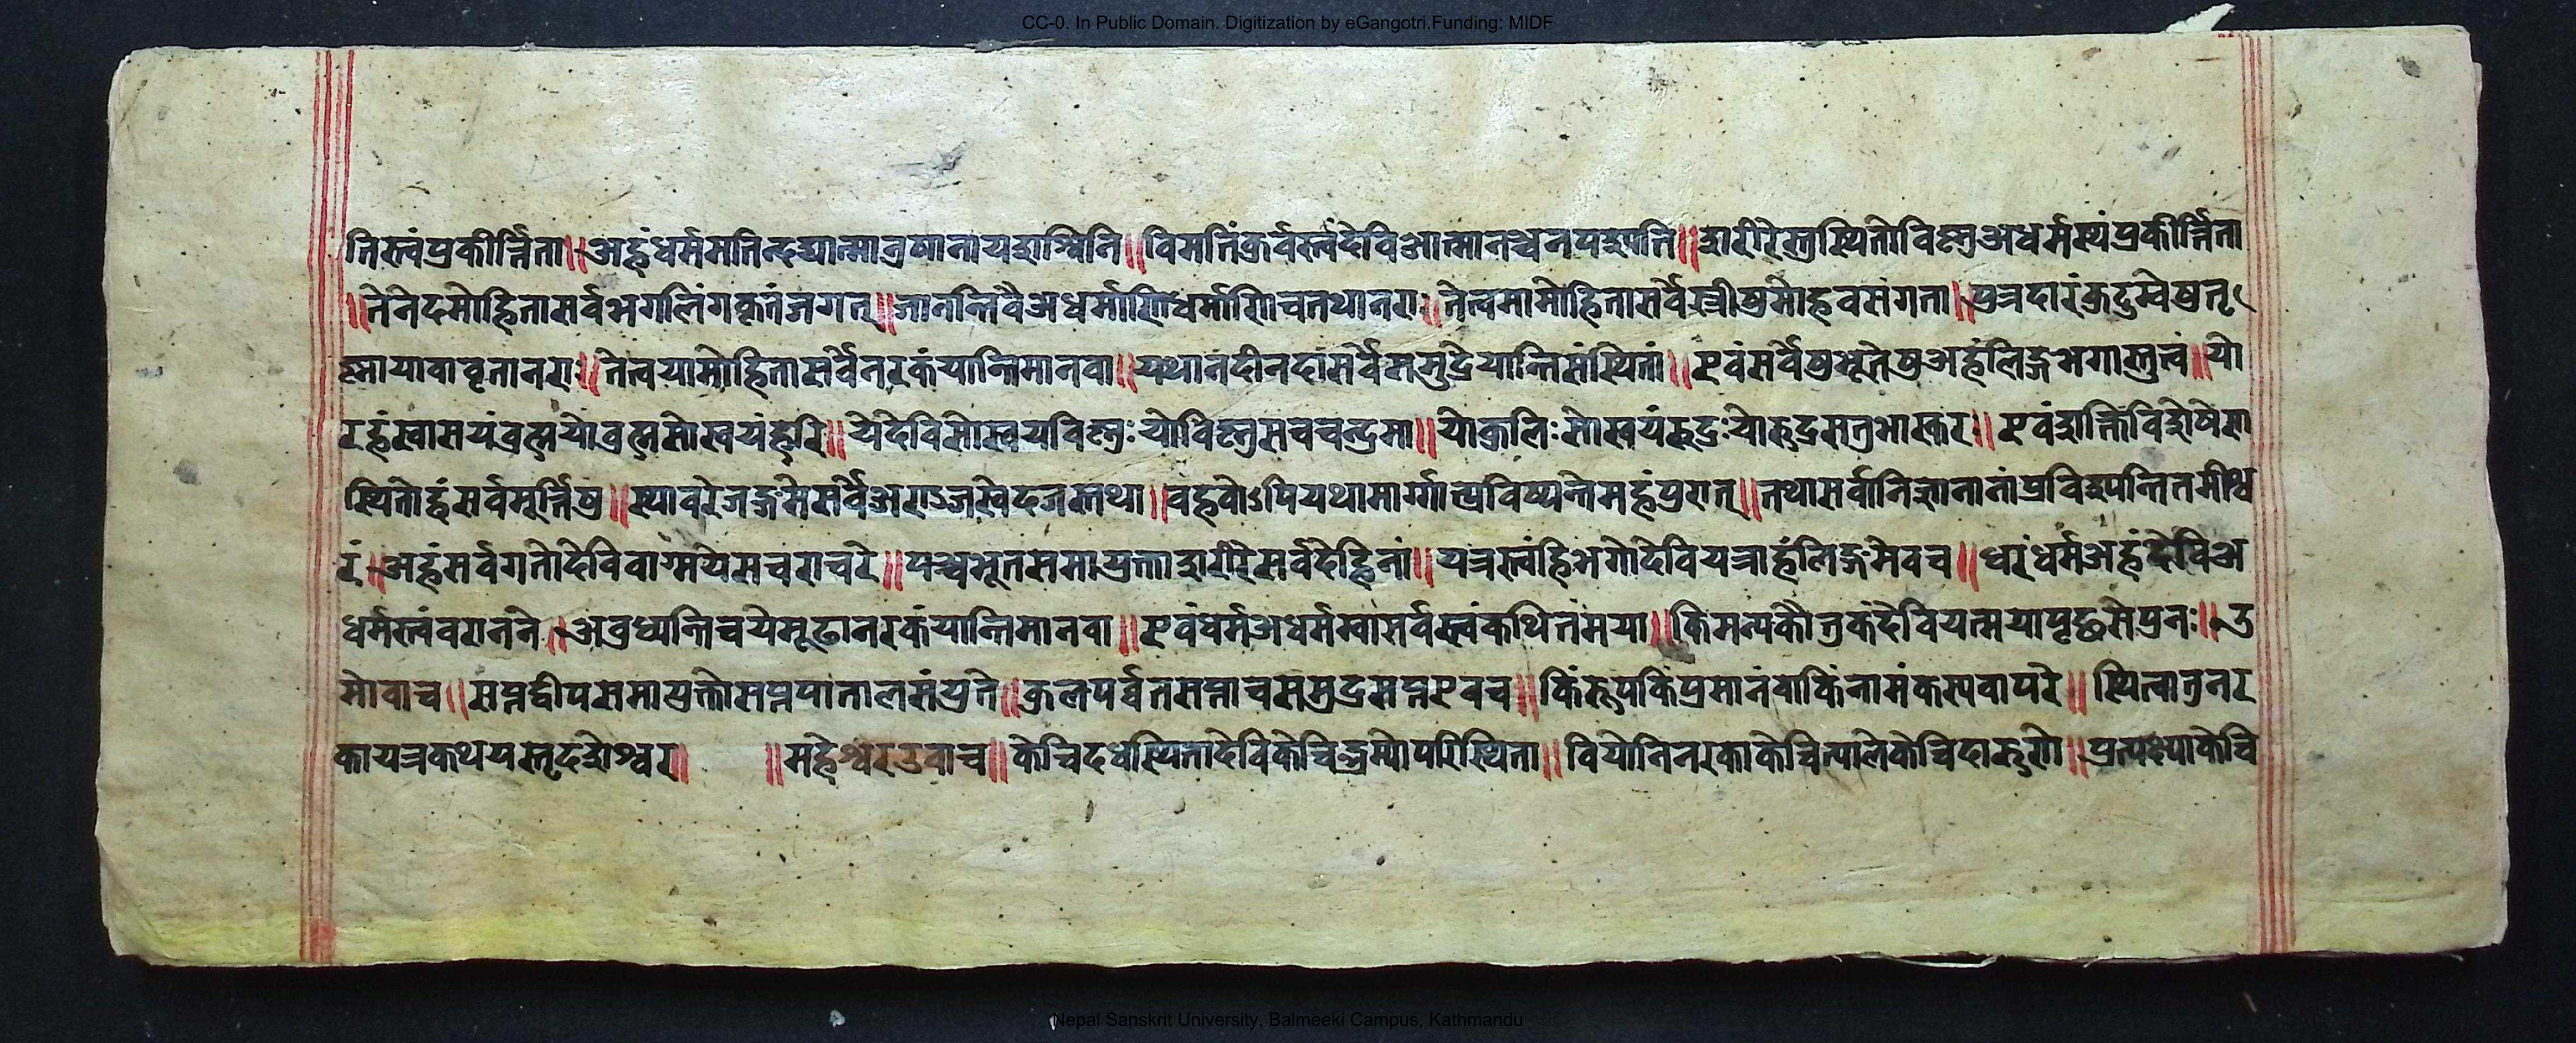 CC-0. In Public Domain. Digitization by eGangotri.Funding: MIDF
तिस्त्वंप्रकीर्त्तिता॥अहंधर्ममति विमतिंकुर्वस्त्वंदेविआत्मानञ्चनपश्यति॥शरीरेस्तुस्थितोविष्णुअधर्मस्यंप्रकीर्त्तिता
॥तेनेदमोहितासर्वभगलिंगकृतंजगत्॥जानन्तिवैअधर्माणिधर्माणिचतथानराः॥तेत्वमामोहितासर्वेस्त्रीषुमोहवसंगता॥पुत्रदारंकुटुम्बेषुतृ
ष्णामायावावृतानराः॥तेत्वयामोहितासर्वेनरकंयान्तिमानवा॥यथानदीनदासर्वेसमुद्रेयान्तिसंस्थितां॥एवंसर्वेषुभूतेषुअहंलिङ्गभगास्तुत्वं॥यो
रहंस्वासयंब्रह्मयोब्रह्मसोस्वयंहरि॥येदेविसोस्वयविष्णुःयोविष्णुसचचन्द्रमा॥योकुलिःसोस्वयंरुद्रःयोरुद्रसतुभास्करः॥एवंशक्तिविशेषेण
स्थितोहंसर्वमूर्त्तिषु॥स्थावरेजङ्गमेसर्वेअराञ्जस्वेदजस्तथा॥वहवोऽपियथामार्ग्गात्प्रविष्यन्तिमहंपुरात्॥तथासर्वानिज्ञानानांप्रविश्यन्तितमीश्व
रं॥अहंसर्वगतोदेविवाग्मयेसचराचरे॥पञ्चभूतसमायुक्ताशरीरेसर्वदेहिनां॥यत्रस्त्वंहिभगोदेवियत्राहंलिङ्गमेवच॥धरंधर्मअहंदेविअ
धर्मस्त्वंवरानने॥अवुध्यन्तिचयेमूढानरकंयान्तिमानवा॥एवंधर्मअधर्मस्वासर्वस्त्वंकथितंमया॥किमत्यकौतुकंदेवियत्मयापृच्छसेपुनः॥उ
मोवाच॥सप्तद्वीपसमायुक्तोसप्तपातालसंयुते॥कुलपर्व्वतसप्ताचसमुद्रसप्तएवच॥किंरूपकिंप्रमानंवाकिंनामंकस्यवापरे॥स्थित्वातुनर
कायत्रकथयस्तृदशेश्वर॥ ॥महेश्वरउवाच॥केचिदधस्थितादेविकेचिद्भूम्योपरिस्थिता॥वियोनिनरकाकेचित्पालेकेचिदारुणे॥ केचि
Nepal Sanskrit University, Balmeeki Campus, Kathmandu